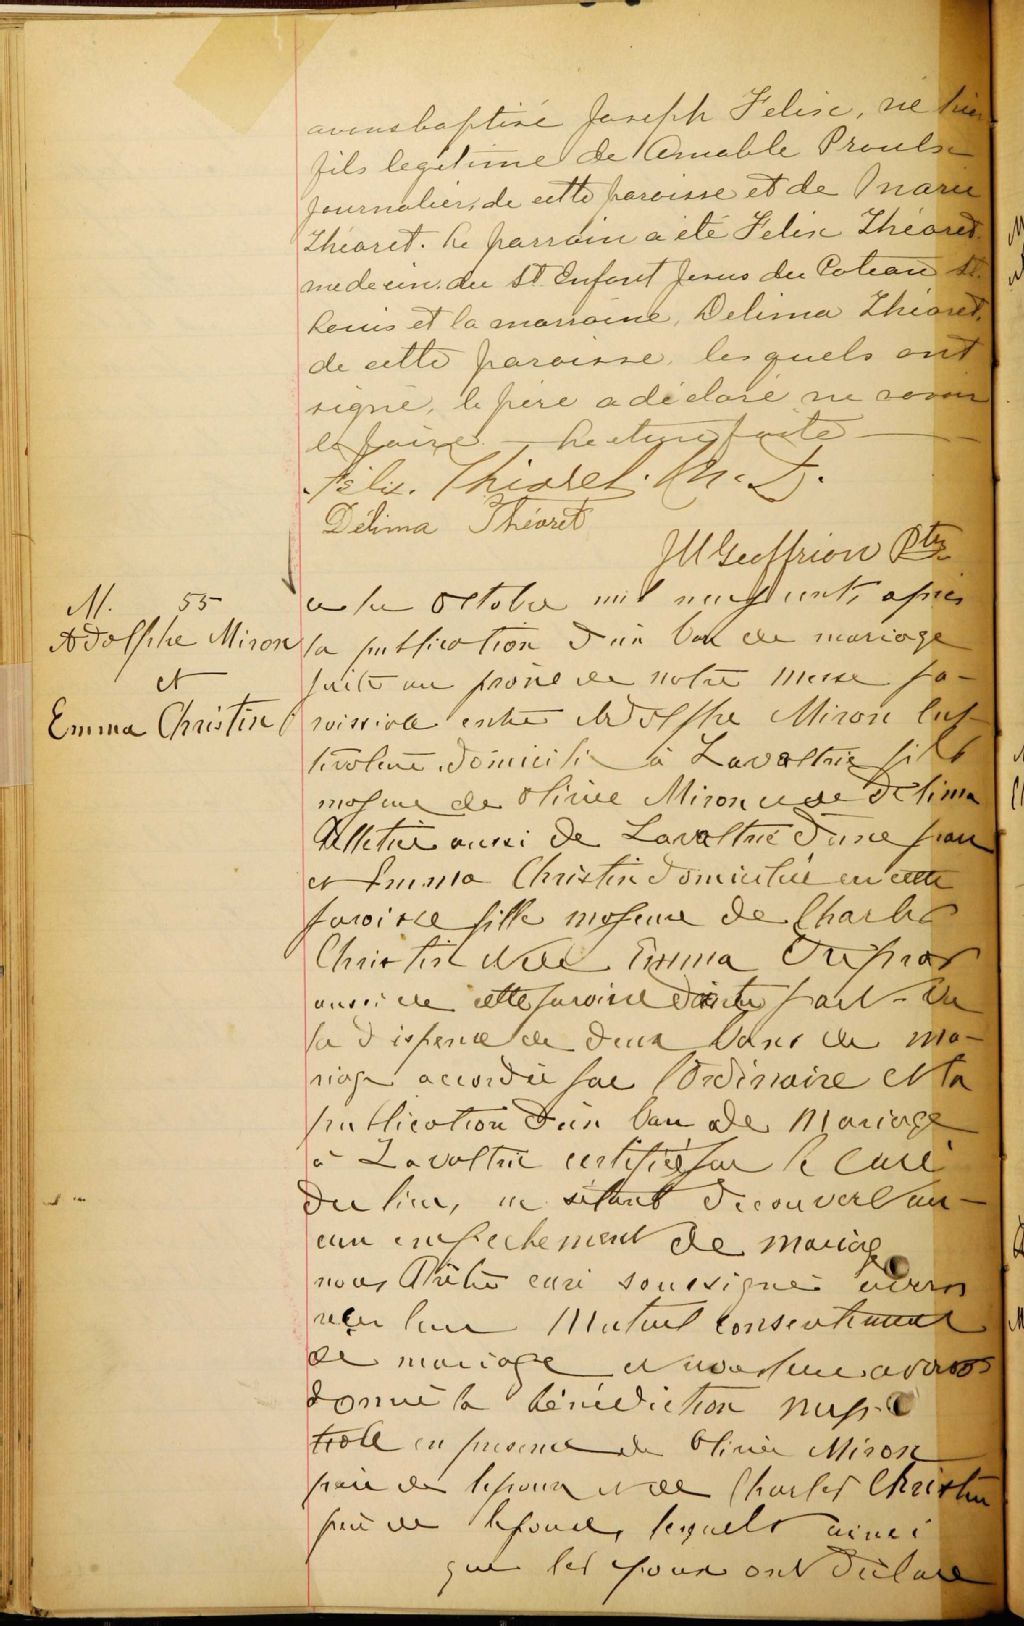 avons baptisé Joseph Felix, né hier
fils legitime de Amable Proulx
journalier, de cette paroisse et de Marie
Théoret. Le parrain a été Felix Théoret
medecin du St Enfant Jesus du Coteau St.
Louis et la marraine, Delima Théoret,
de cette paroisse, lesquels ont
signé, le père a déclaré ne savoir
le faire. — Lecture faite —
Félix. Théoret. M. D.
Délima Théoret
JM Geoffrion Ptre
M. 55
Adolphe Miron
et
Emma Christin
Octobre mil neuf cents, après
la publication d'un ban de mariage
faite au prone de notre messe pa-
roissiale entre Adolphe Miron cul-
tivateur domicilié à Lavaltrie fils
majeur de Olivier Miron et de Délima
Pelletier aussi de Lavaltrie d'une part
et Emma Christin domiciliée en cette
paroisse fille majeure de Charles
Christin et de Emma
aussi de cette paroisse d'autre part - Vu
la dispense de deux bans de ma-
riage accordée par l'Ordinaire et la
publication d'un ban de Mariage
à Lavaltrie certifiée par le Curé
du lieu, ne s'étant decouvert au-
cun empechement de mariage
nous Prêtre curé soussigné avons
reçu leur Mutuel consentement
de mariage et nous leur avons
donné la bénédiction nup-
tiale en presence de Olivier Miron
père de l'epoux et de Charles Christin
père de l'epouse, lesquels ainsi
que les epoux ont déclaré